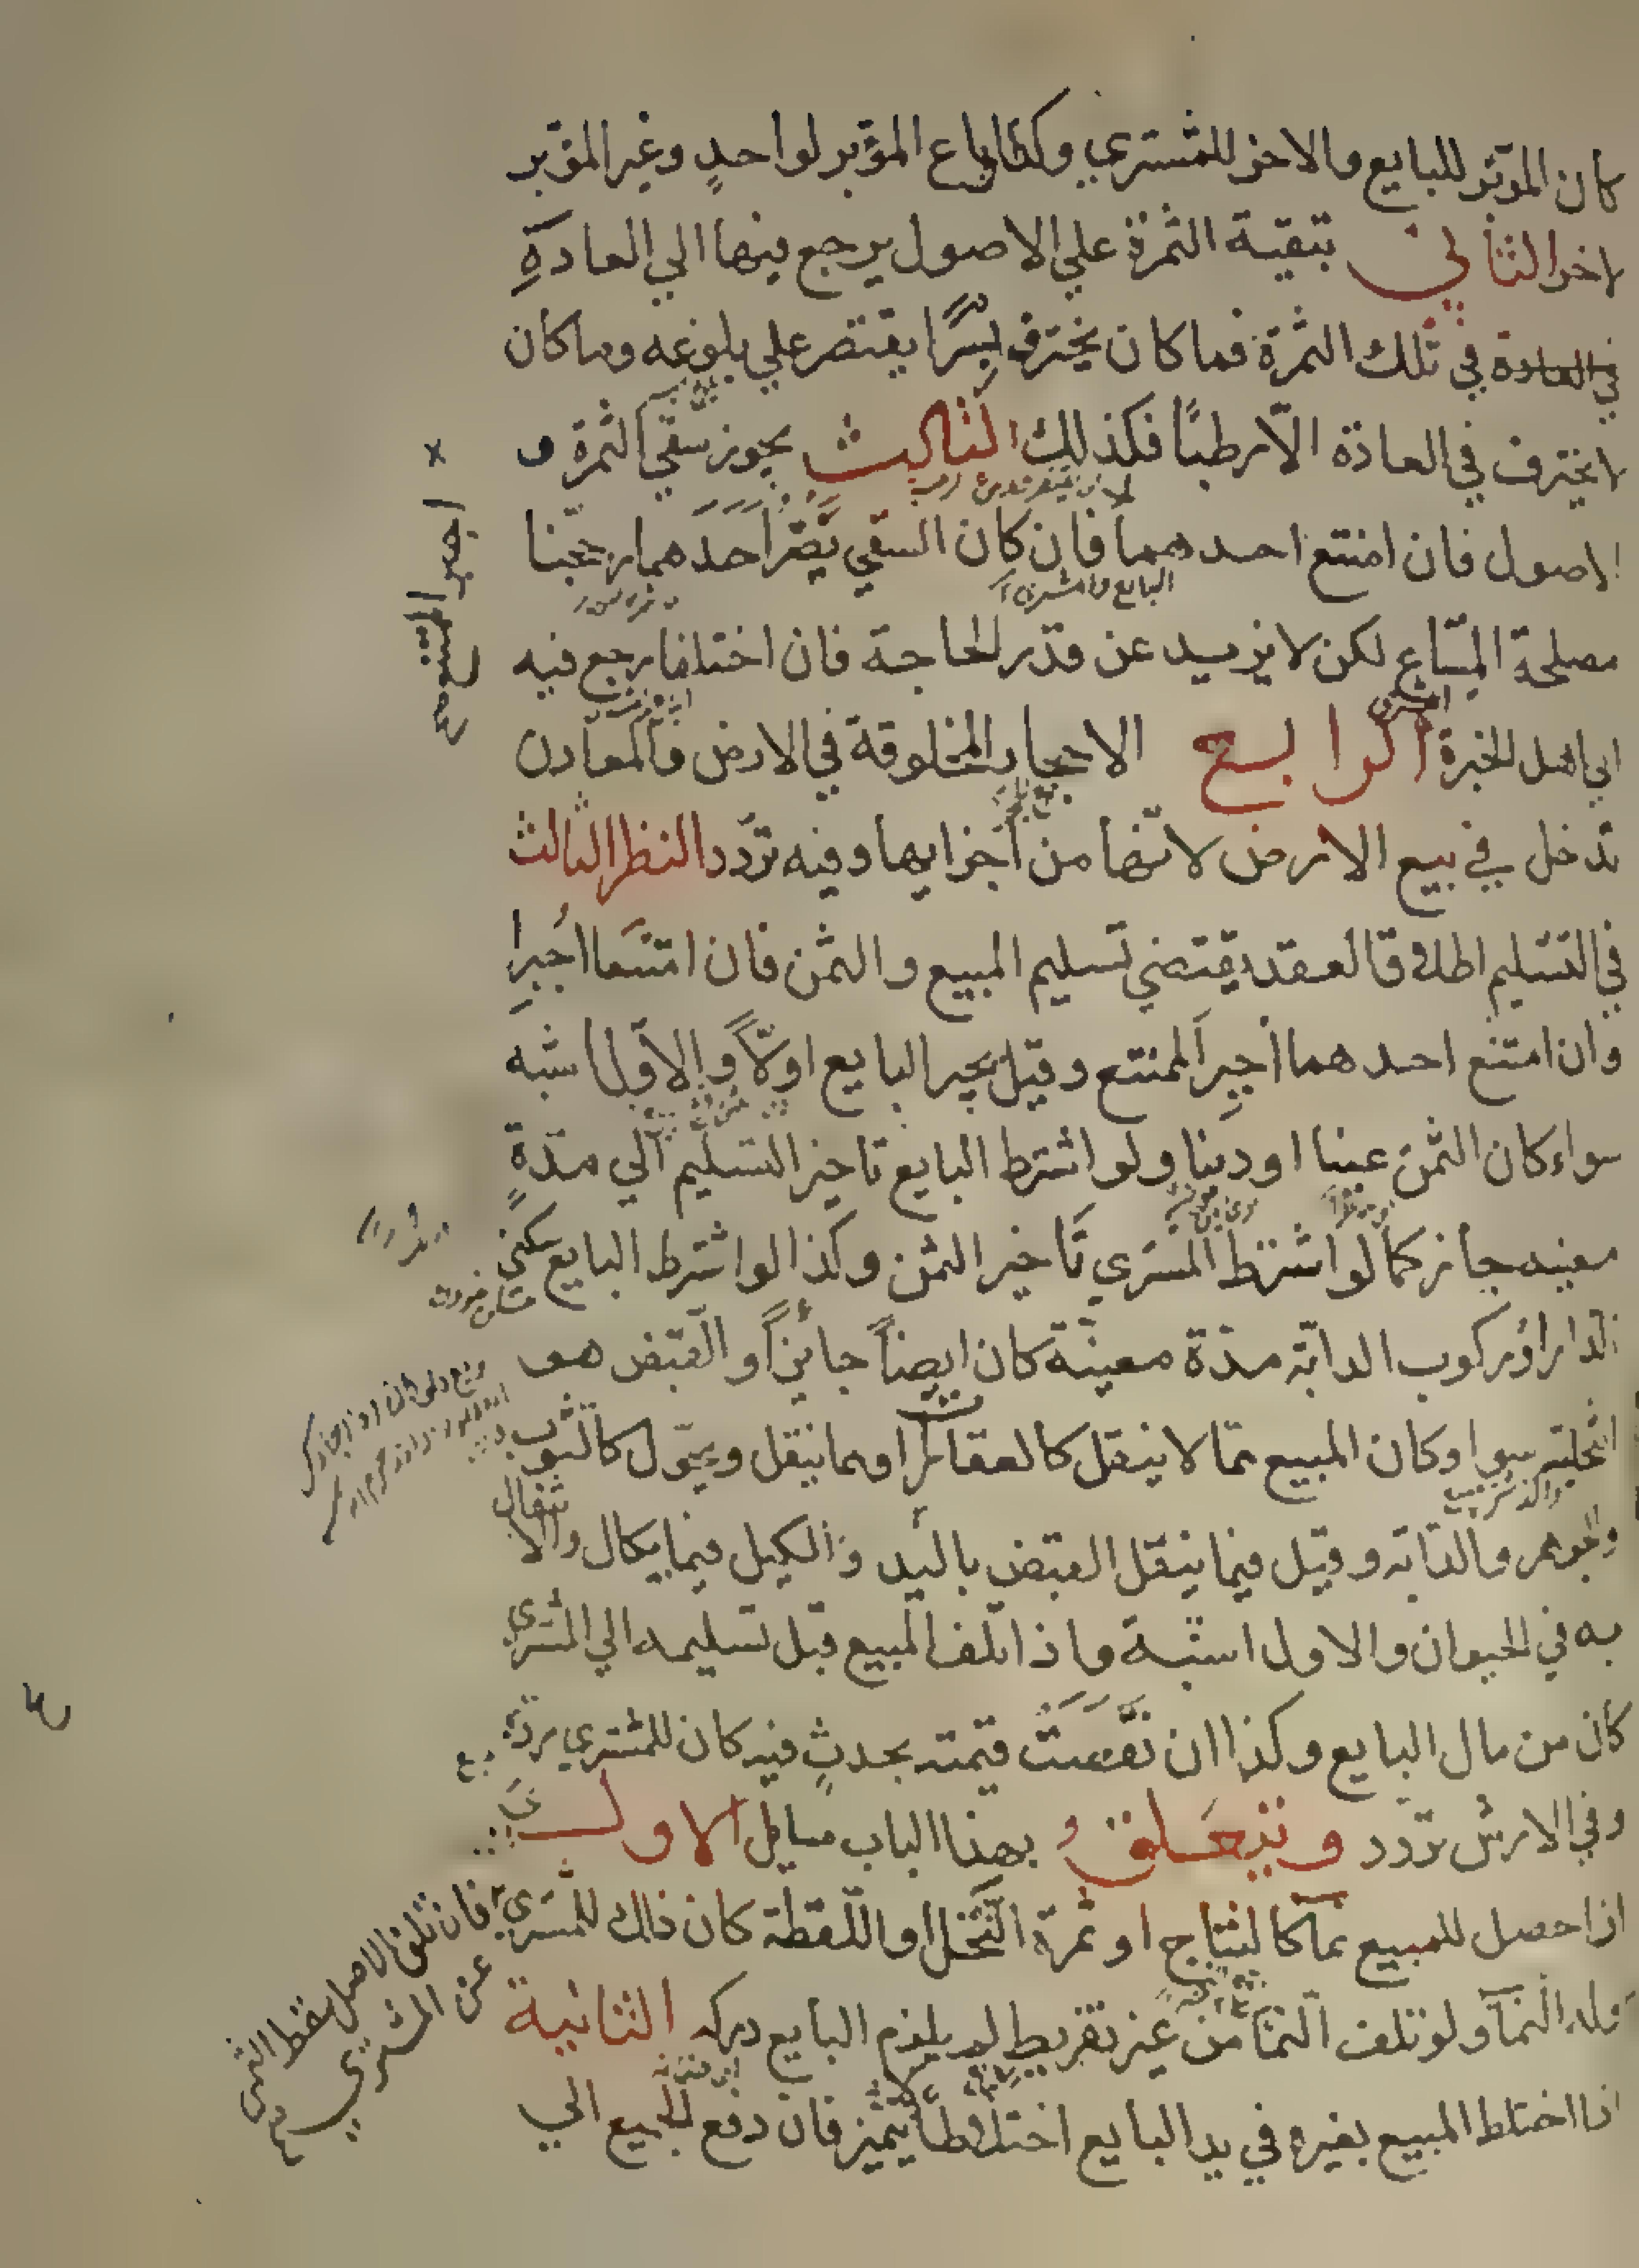 كان المؤبر للبايع والاخر للمشتري وكذا لو باع المؤبر لواحدٍ وغير المؤبر
لاخر الثاني تبقية الثمرة علي الاصول يرجع فيها الي العادةِ
في العادة في تلك الثمرة فما كان يخترف بسرًا يقتصر علي بلوغه وما كان
لا يخترف في العادة الّا رطبًا فكذلك الثالث يجوز سقي الثمرة و
الاصول فان امتنع احدهما فان كان السقي يضرّ احدهما رجّحنا
مصلحة المبتاع لكن لا يزيد عن قدر الحاجة فان اختلفا رجع فيه
الي اهل الخبرة الرابع الاحجار المخلوقة في الارض والمعادن
تدخل في بيع الارض لانّها من اجزايها وفيه تردّد النظر الثالث
في التسليم اطلاق العقد يقتضي تسليم المبيع والثمن فان امتنعا اُجبِرا
وان امتنع احدهما اُجبِرَ الممتنع وقيل يجبر البايع اولًا والاول اشبه
سواء كان الثمن عينا او دينا ولو اشترط البايع تاخير التسليم الي مدّةٍ
معينه جاز كما لو اشترط المشتري تاخير الثمن وكذا لو اشترط البايع سكني
الدار او ركوب الدابّه مدّة معيّنة كان ايضاً جائزاً والقبض هو
التخلية سوا وكان المبيع ممّا لا ينقل كالعقار او مما ينقل ويحوّل كالثوب
والجوهر والدابّه وقيل فيما ينقل القبض باليد والكيل فيما يكال والانتقال
به في الحيوان والاول اشبه واذا تلف المبيع قبل تسليمه الي المشتري
كان من مال البايع وكذا ان نقصت قيمته بحدثٍ فيه كان للمشتري ردّه
وفي الارش تردد ويتعلق بهذا الباب مسايل الاولي
اذا حصل للمبيع نماٌ كالنتاج او ثمرة النّخل او اللّقطة كان ذلك للمشتري فان تلف الاصل سقط الثمن
عن المشتري
وله النمآ ولو تلف النمآ من غير تفريط لم يلزم البايع دركه الثانية
اذا اختلط المبيع بغيره في يد البايع اختلاطا لا يتميز فان دفع الجميع الي
اجبر الممتنع
البايع والمشتري
المشتري